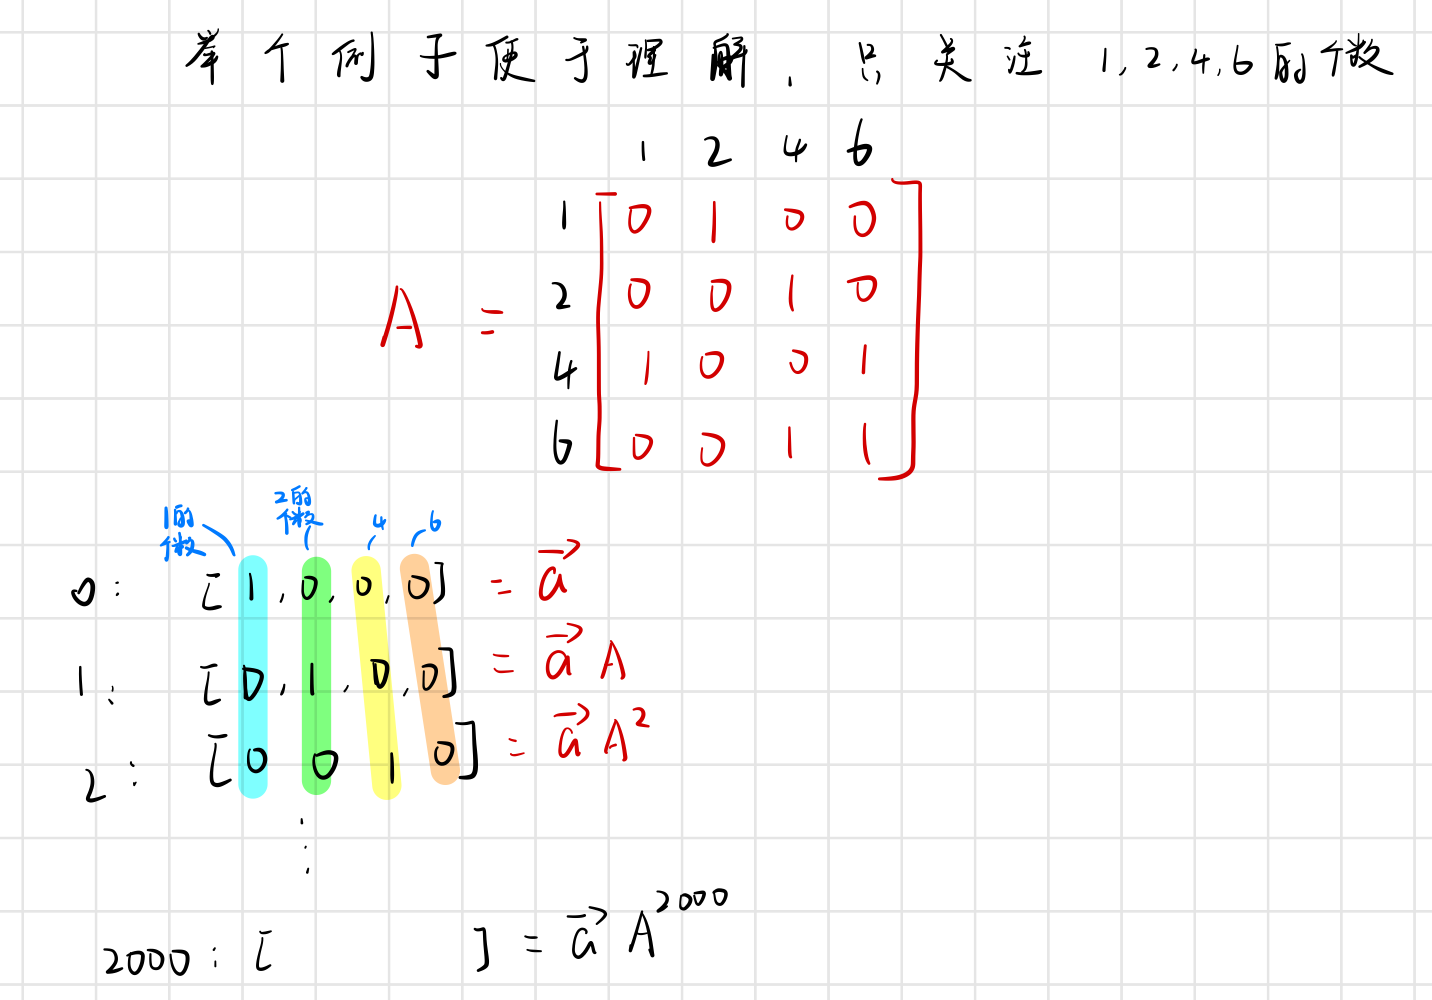 举个例子便于理解, 只关注 1,2,4,6的个数
1 2 4 6
1 [0 1 0 0]
A = 2 [0 0 1 0]
4 [1 0 0 1]
6 [0 0 1 1]
1的个数 2的个数 4 6
0: [1,0,0,0] = a⃗
1: [0,1,0,0] = a⃗ A
2: [0 0 1 0] = a⃗ A²
⋮
2000: [ ] = a⃗ A²⁰⁰⁰